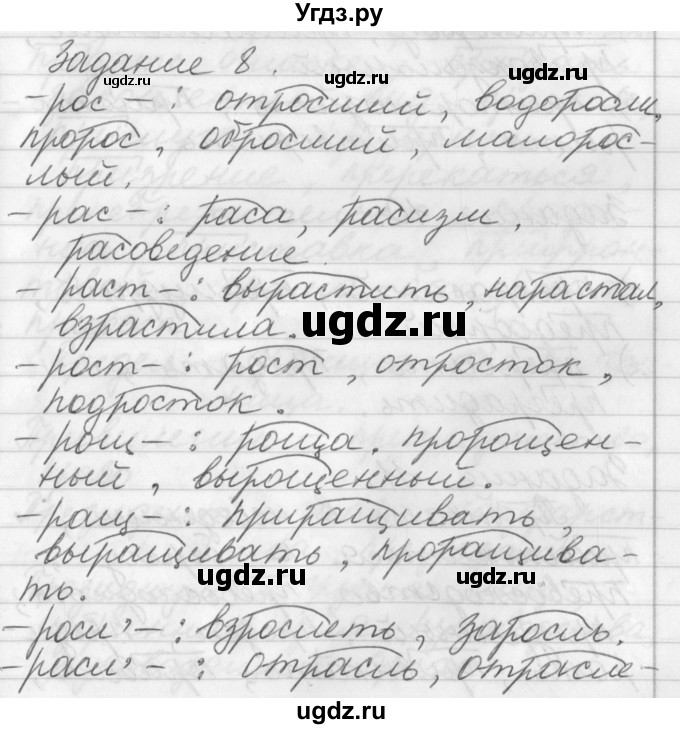 Угдз.ру
Задание 8.
ugdz.ru ugdz.ru ugdz.ru
-рос-: отросший, водоросли,
пророс, обросший, малорос-
лый.
-рас-: раса, расизм,
расоведение.
-раст-: вырастить, нарастал,
взрастила.
ugdz.ru
-рост-: рост, отросток,
подросток.
-рощ-: роща, пророщен-
ный, выращенный.
-ращ-: приращивать,
выращивать, проращива-
ть.
ugdz.ru ugdz.ru
-росл'-: взрослеть, заросль.
-расл'-: отрасль, отрасле-
ugdz.ru